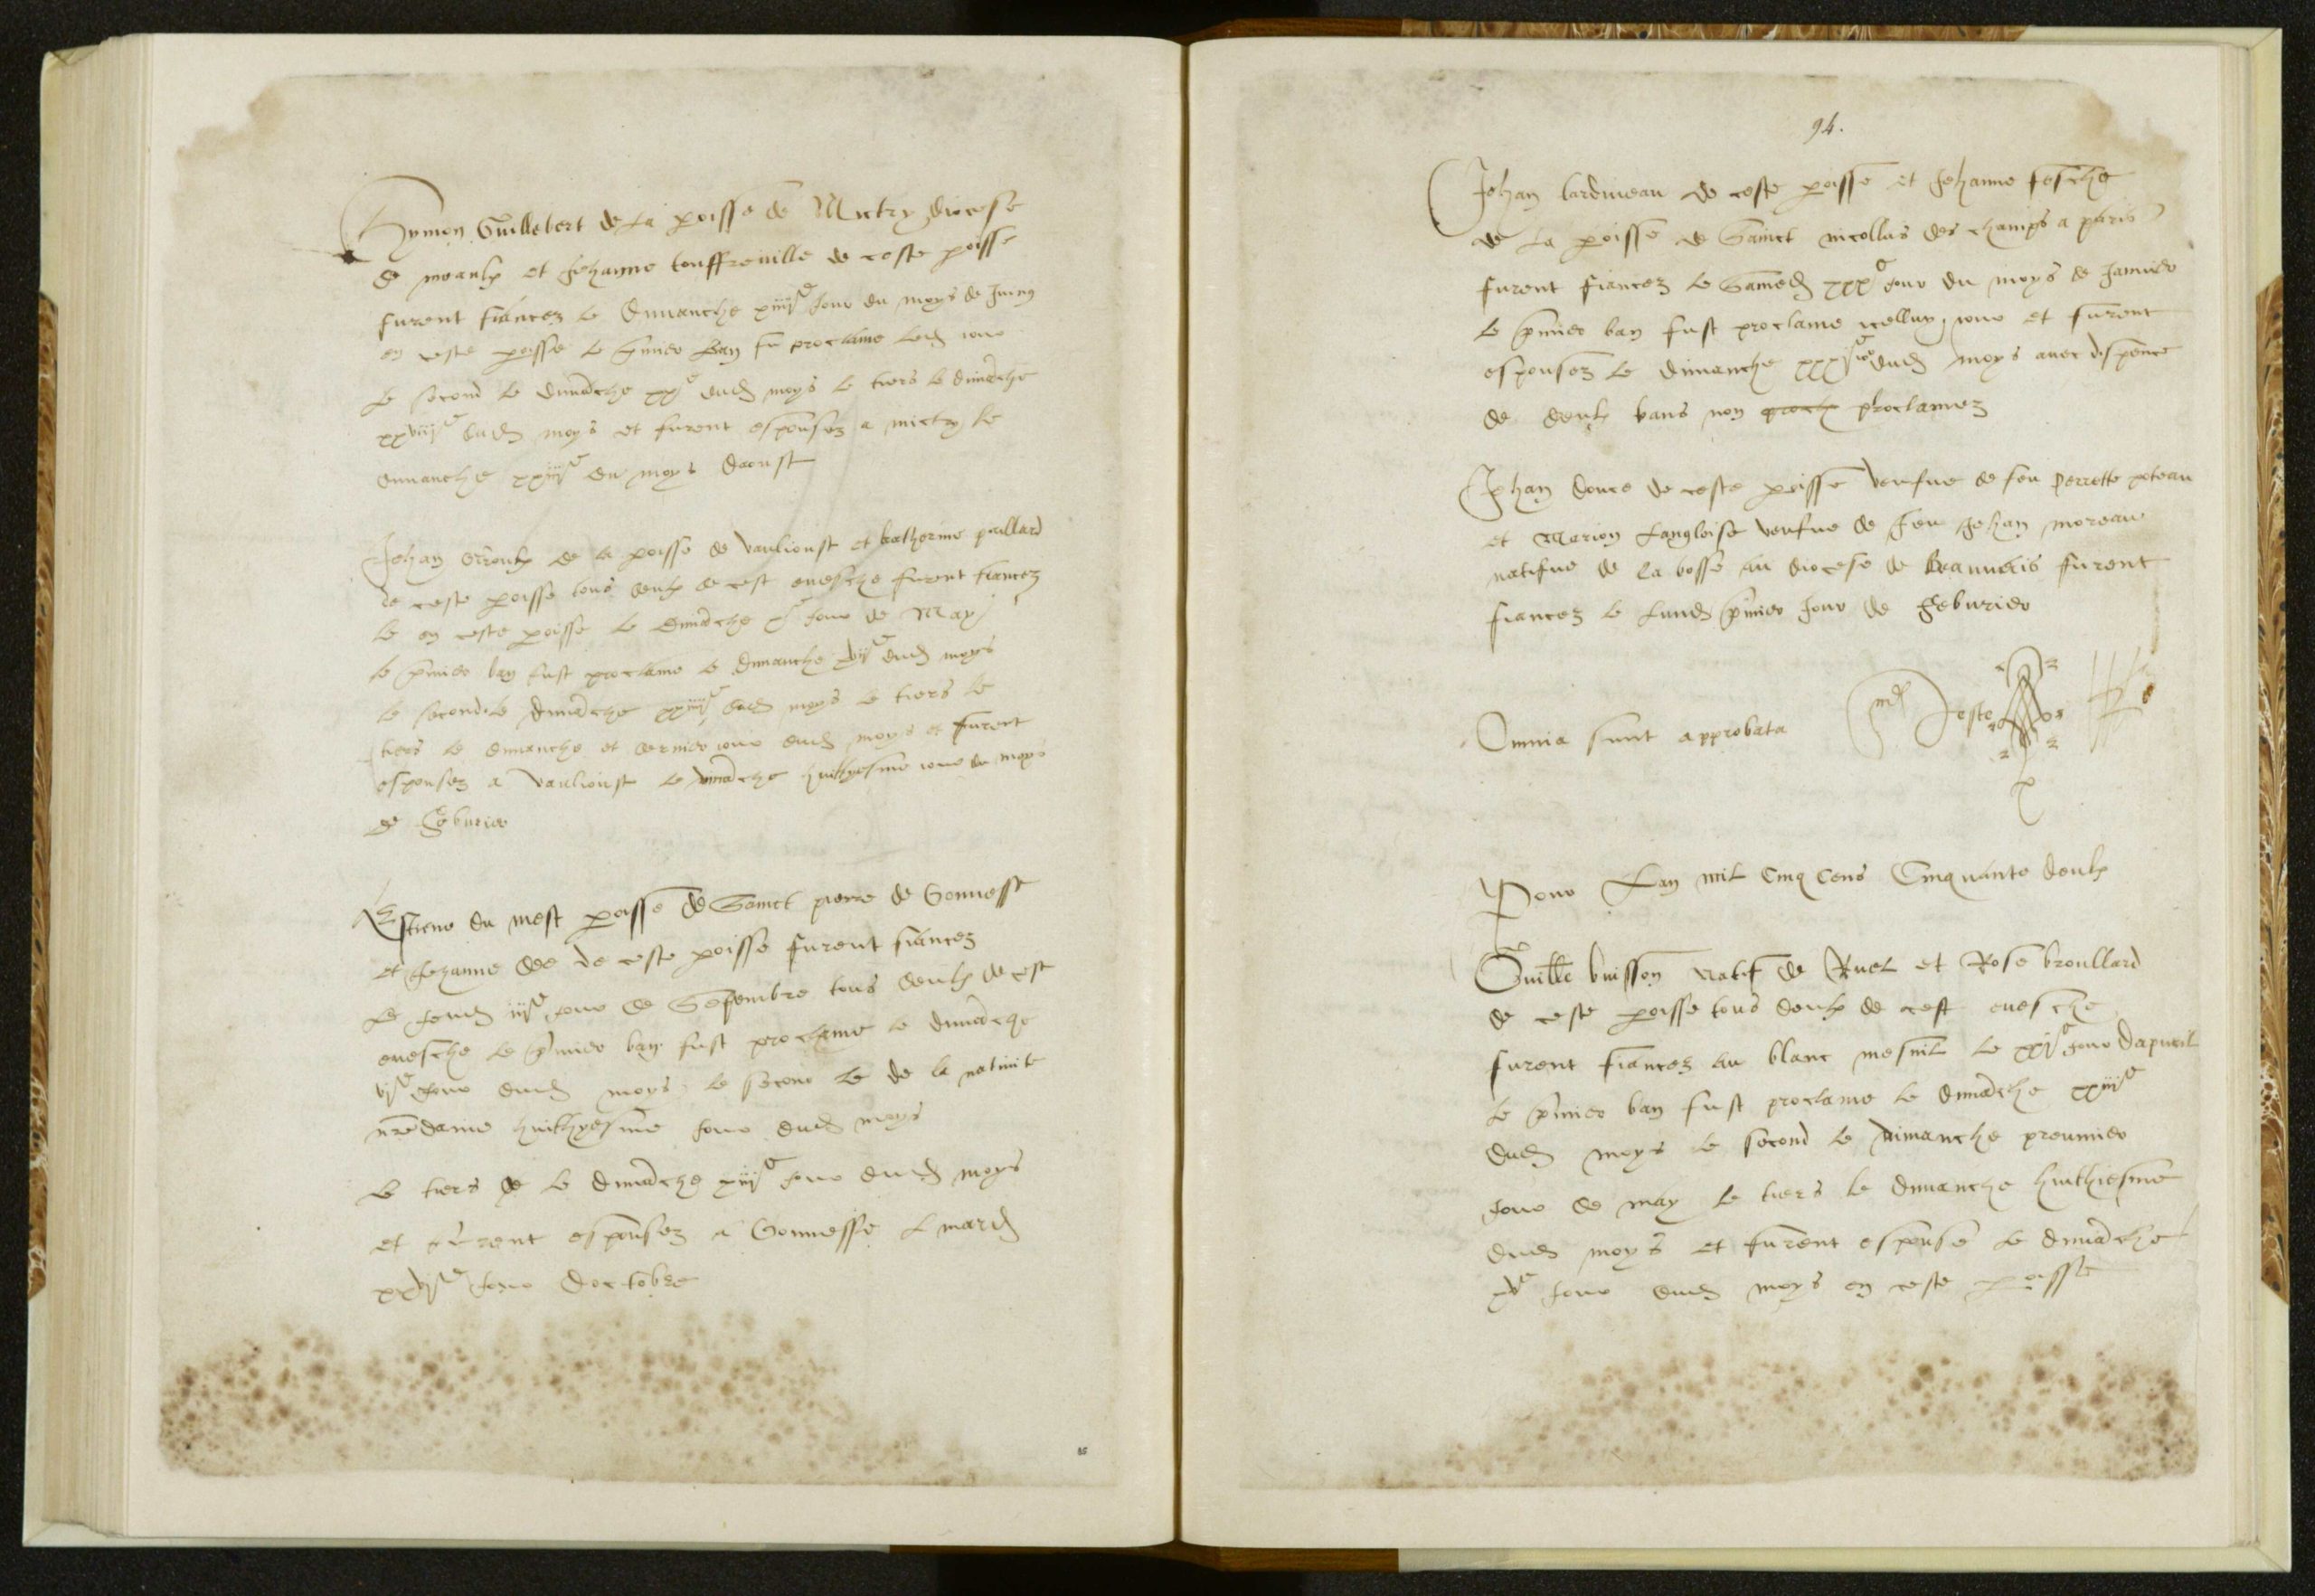 Symon Guillebert de la poisse de Mictry diocese
de meaulx et Jehanne touffreville de ceste poisse
furent fiancez le dimanche xiiiie jour du moys de Juing
en ceste poisse le pmier ban fu proclame led jour
le second le dimache xxe dud moys le tiers le dimache
xxviie dud moys et furent espousez a mictry le
dimanche xxiiie du moys daoust
Jehan de la poisse de vaulioust et katherine paillard
de ceste poisse tous deulx de cest evesche furent fiancez
le en ceste poisse le dimache xe jour de May
le pmier ban fust proclame le dimanche xviie dud moys
le second le dimache xxiiiie dud moys le tiers le
tiers le dimanche et dernier jour dud moys et furent
espousez a vaulioust le dimache huithyesme jour du moys
de feburier
Estiene du mest poisse de Sainct pierre de Gonnesse
et Jehanne dee de ceste poisse furent fiancez
le jeudi iiie jour de Septembre tous deulx de cest
evesche le pmier ban fust proclame le dimache
vie jour dud moys le second le de la nativite
nredame huithyesme jour dud moys
le tiers de le dimache xiiie jour dud moys
et furent espousez a Gonnesse l mardi
xxviie jour doctobre
94.
Jehan lardineau de ceste poisse et Jehanne fesche
de la poisse de Sainct nicollas des champs a paris
furent fiancez le Samedi xxxe jour du moys de Janvier
le pmier ban fust proclame icelluy jour et furent
espousez le dimanche xxxie jour dud moys avec dispence
de deulx bans non proclamez
Jehan douce de ceste poisse veufve de feu perrette poteau
et Marion Langloise veufve de feu Jehan moreau
natifve de la bosse au diocese de Beauveais furent
fiancez le lundi pmier jour de feburier
Omnia sunt approbata
Pour Lan mil Cinq Cens Cinquante deulx
Guille buisson natif de Ruel et Rose broullard
de ceste poisse tous deulx de cest evesche
furent fiancez au blanc mesnil le xxie jour dapvril
le pmier ban fust proclame le dimache xxiiiie
dud moys le second le dimanche preumier
jour de may le tiers le dimanche huithiesme
dud moys et furent espouse le dimache
xve jour dud moys en ceste poisse